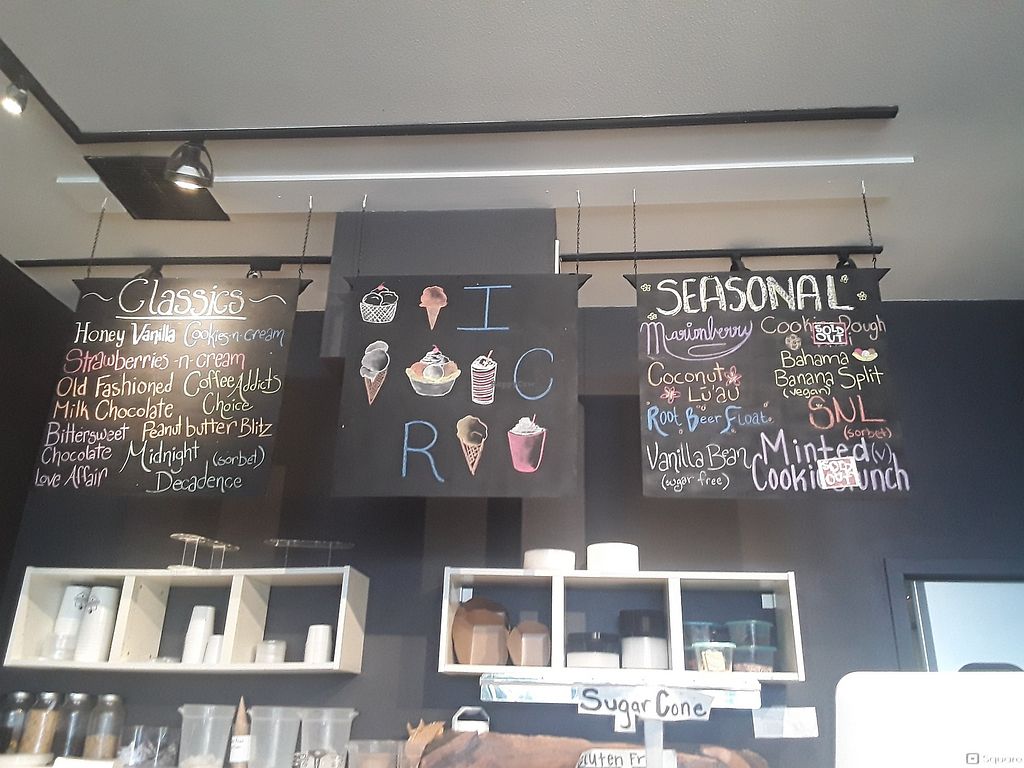 ~ Classics ~
Honey Vanilla
Cookies-n-cream
Strawberries-n-cream
Old Fashioned
Milk Chocolate
Coffee Addicts
Choice
Bittersweet
Chocolate
Love Affair
Peanut butter Blitz
Midnight (sorbet)
Decadence
I
C
R
SEASONAL
Marionberry
Coconut
Lu'au
Root Beer Float
Vanilla Bean
(sugar free)
Cookie Dough
SOLD
OUT
Bahama
Banana Split
(vegan)
SNL
(sorbet)
Minted (v)
Cookie Crunch
SOLD
OUT
Sugar Cone
Gluten Fr
Square